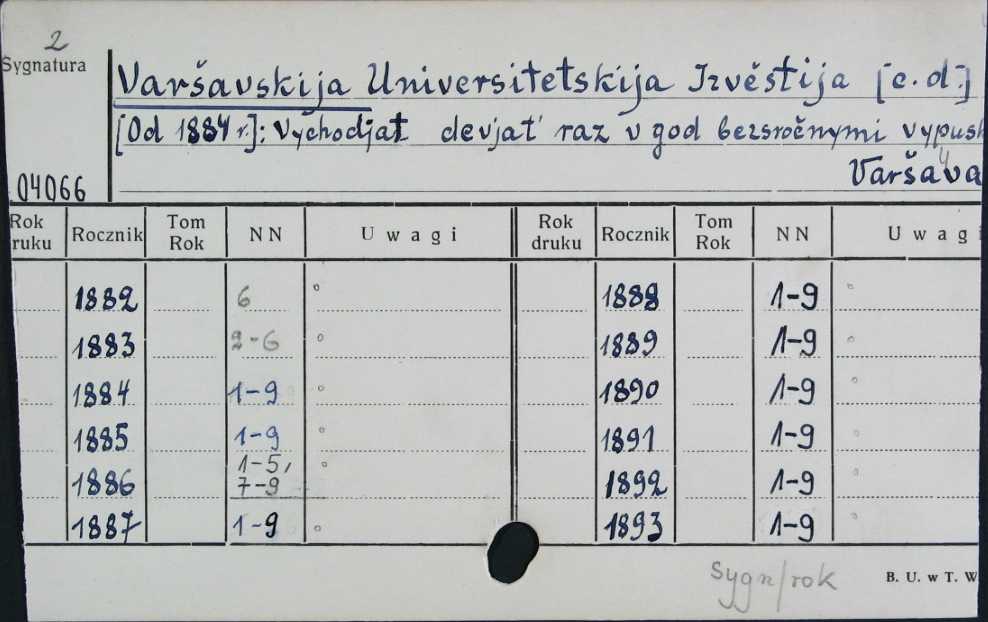 2
Sygnatura
Varšavskija Universitetskija Izvěstija [c.d.]
[Od 1884 r.]: Vychodjat devjat' raz v god bezsročnymi vypusk
Varšava
04066
Rok druku Rocznik Tom Rok NN Uwagi Rok druku Rocznik Tom Rok NN Uwagi
1882 6 1888 1-9
1883 2-6 1889 1-9
1884 1-9 1890 1-9
1885 1-9 1891 1-9
1886 1-5, 7-9 1892 1-9
1887 1-9 1893 1-9
Sygn/rok
B. U. w T. W